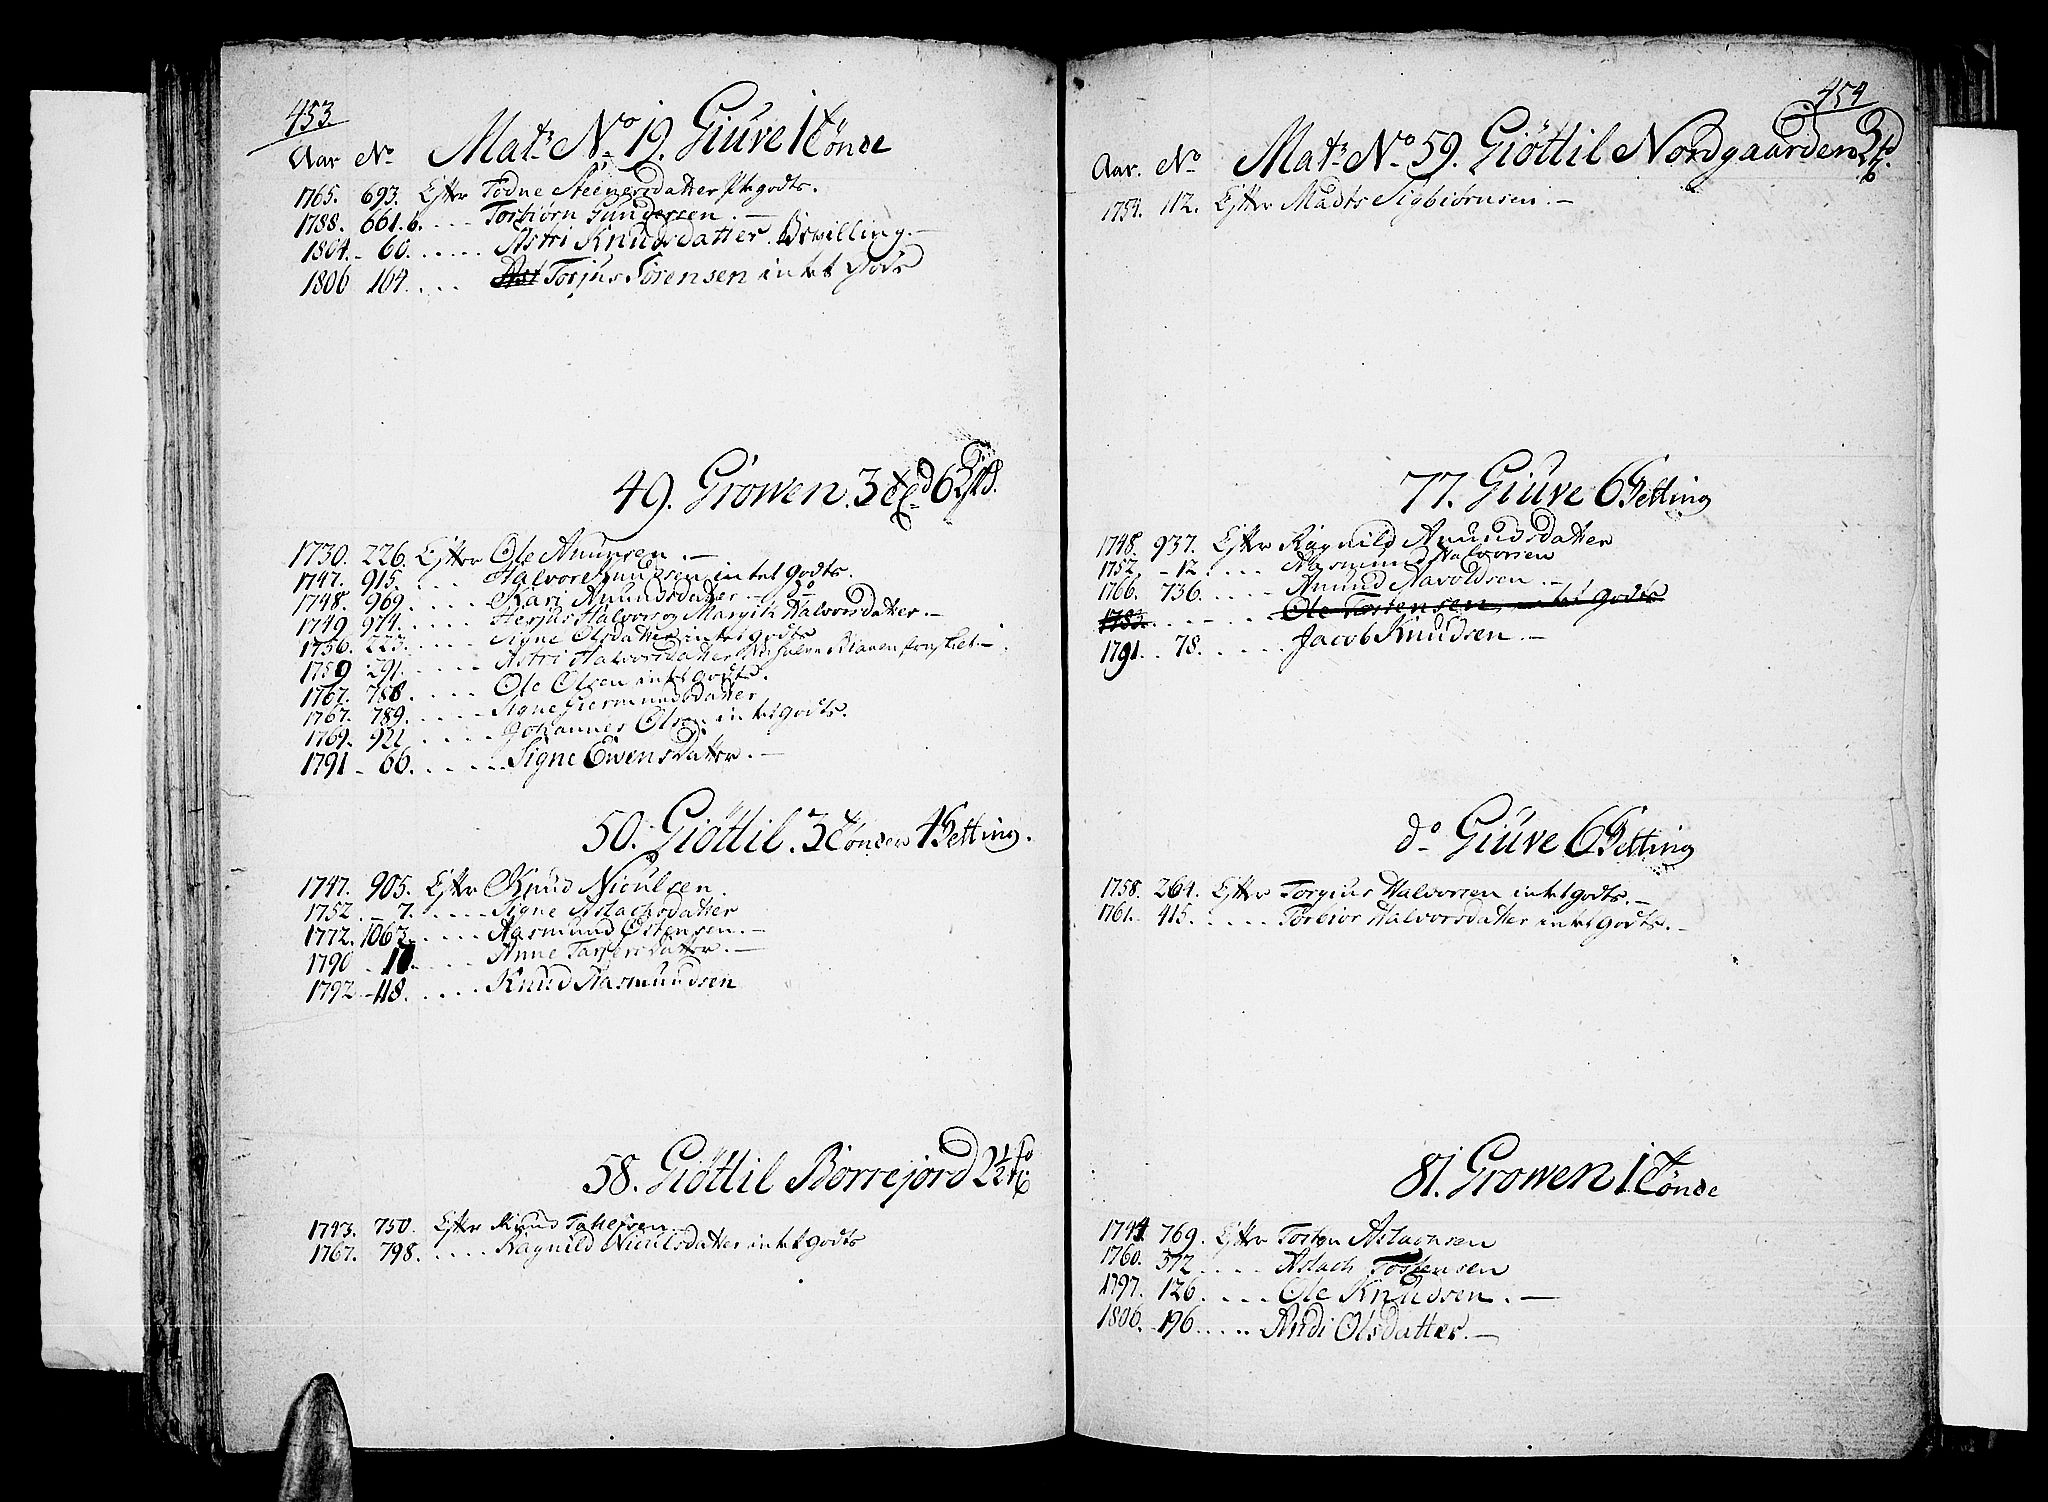 453
Aar No Matr No 19. Giuve 1 Tønde
1765. 693. Efter Todne Steenersdatter Ptegodts.
1788. 661.b. .... Torbiørn Gundersen. —
1804. - 60. ..... Astri Knudsdatter. Bevilling. —
1806 164. .... Ast Torjus Sørensen intet Gods
49. Growen. 3
1730. 226. Efter Ole Anunsen. —
1747. 915. .... Halvor Knudsen intet godts.
1748. 969. .... Kari Anundsdatter —
1749 974. .... Herjus Halvors og Margith Halvorsdatter —
1756. 223. .... Signe Olsdatter intet godts
1759 291. .... Astri Halvorsdatter
1767. 788. .... Ole Olsen intet godts.
1767. 789. .... Signe Giermundsdatter
1769. 921 .... Johannes Olsen intet godts.
1791 - 66. .... Signe Evensdatter. —
50. Giøttil. 3 Tønder 4 Setting.
1747. 905. Efter Knud Niculsen.
1752. - 7. .... Signe Aslachsdatter
1772. 1063. .... Aasmund Østensen. —
1790 - 10. .... Anne Tarjersdatter. —
1792 - 118. .... Knud Aasmundsen
58. Giøttil Borrejord 2 1/2
1743. 750. Efter Knud Tallefsen
1767. 798. .... Ragnild Niculsdatter intet godts
454
Aar. No Matr No 59. Giøttil Nordgaarden
1754. 112. Efter Madts Sigbiørnsen. —
77. Giuve 6 Setting
1748. 937. Efter Ragnild Anundsdatter
1752. - 12. .... Aasmund Halvorsen
1766. 736. .... Anund Navoldsen. —
1783. .... Ole Tostensen, intet godts
1791. . 78. .... Jacob Knudsen. —
do Giuve 6 Setting
1758. 264. Efter Torgius Halvorsen intet godts. —
1761. 415. .... Torbior Halvorsdatter intet godts. —
81. Growen 1 Tønde
1744 769. Efter Tosten Aslachsen
1760. 372 .... Aslach Tostensen
1797. 126. .... Ole Knudsen. —
1806. - 196. .... Andi Olsdatter. —